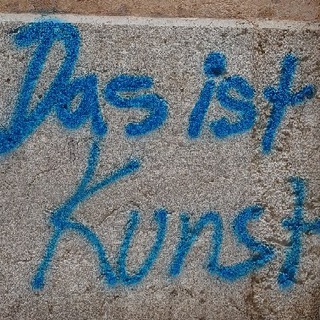 Das ist
Kunst